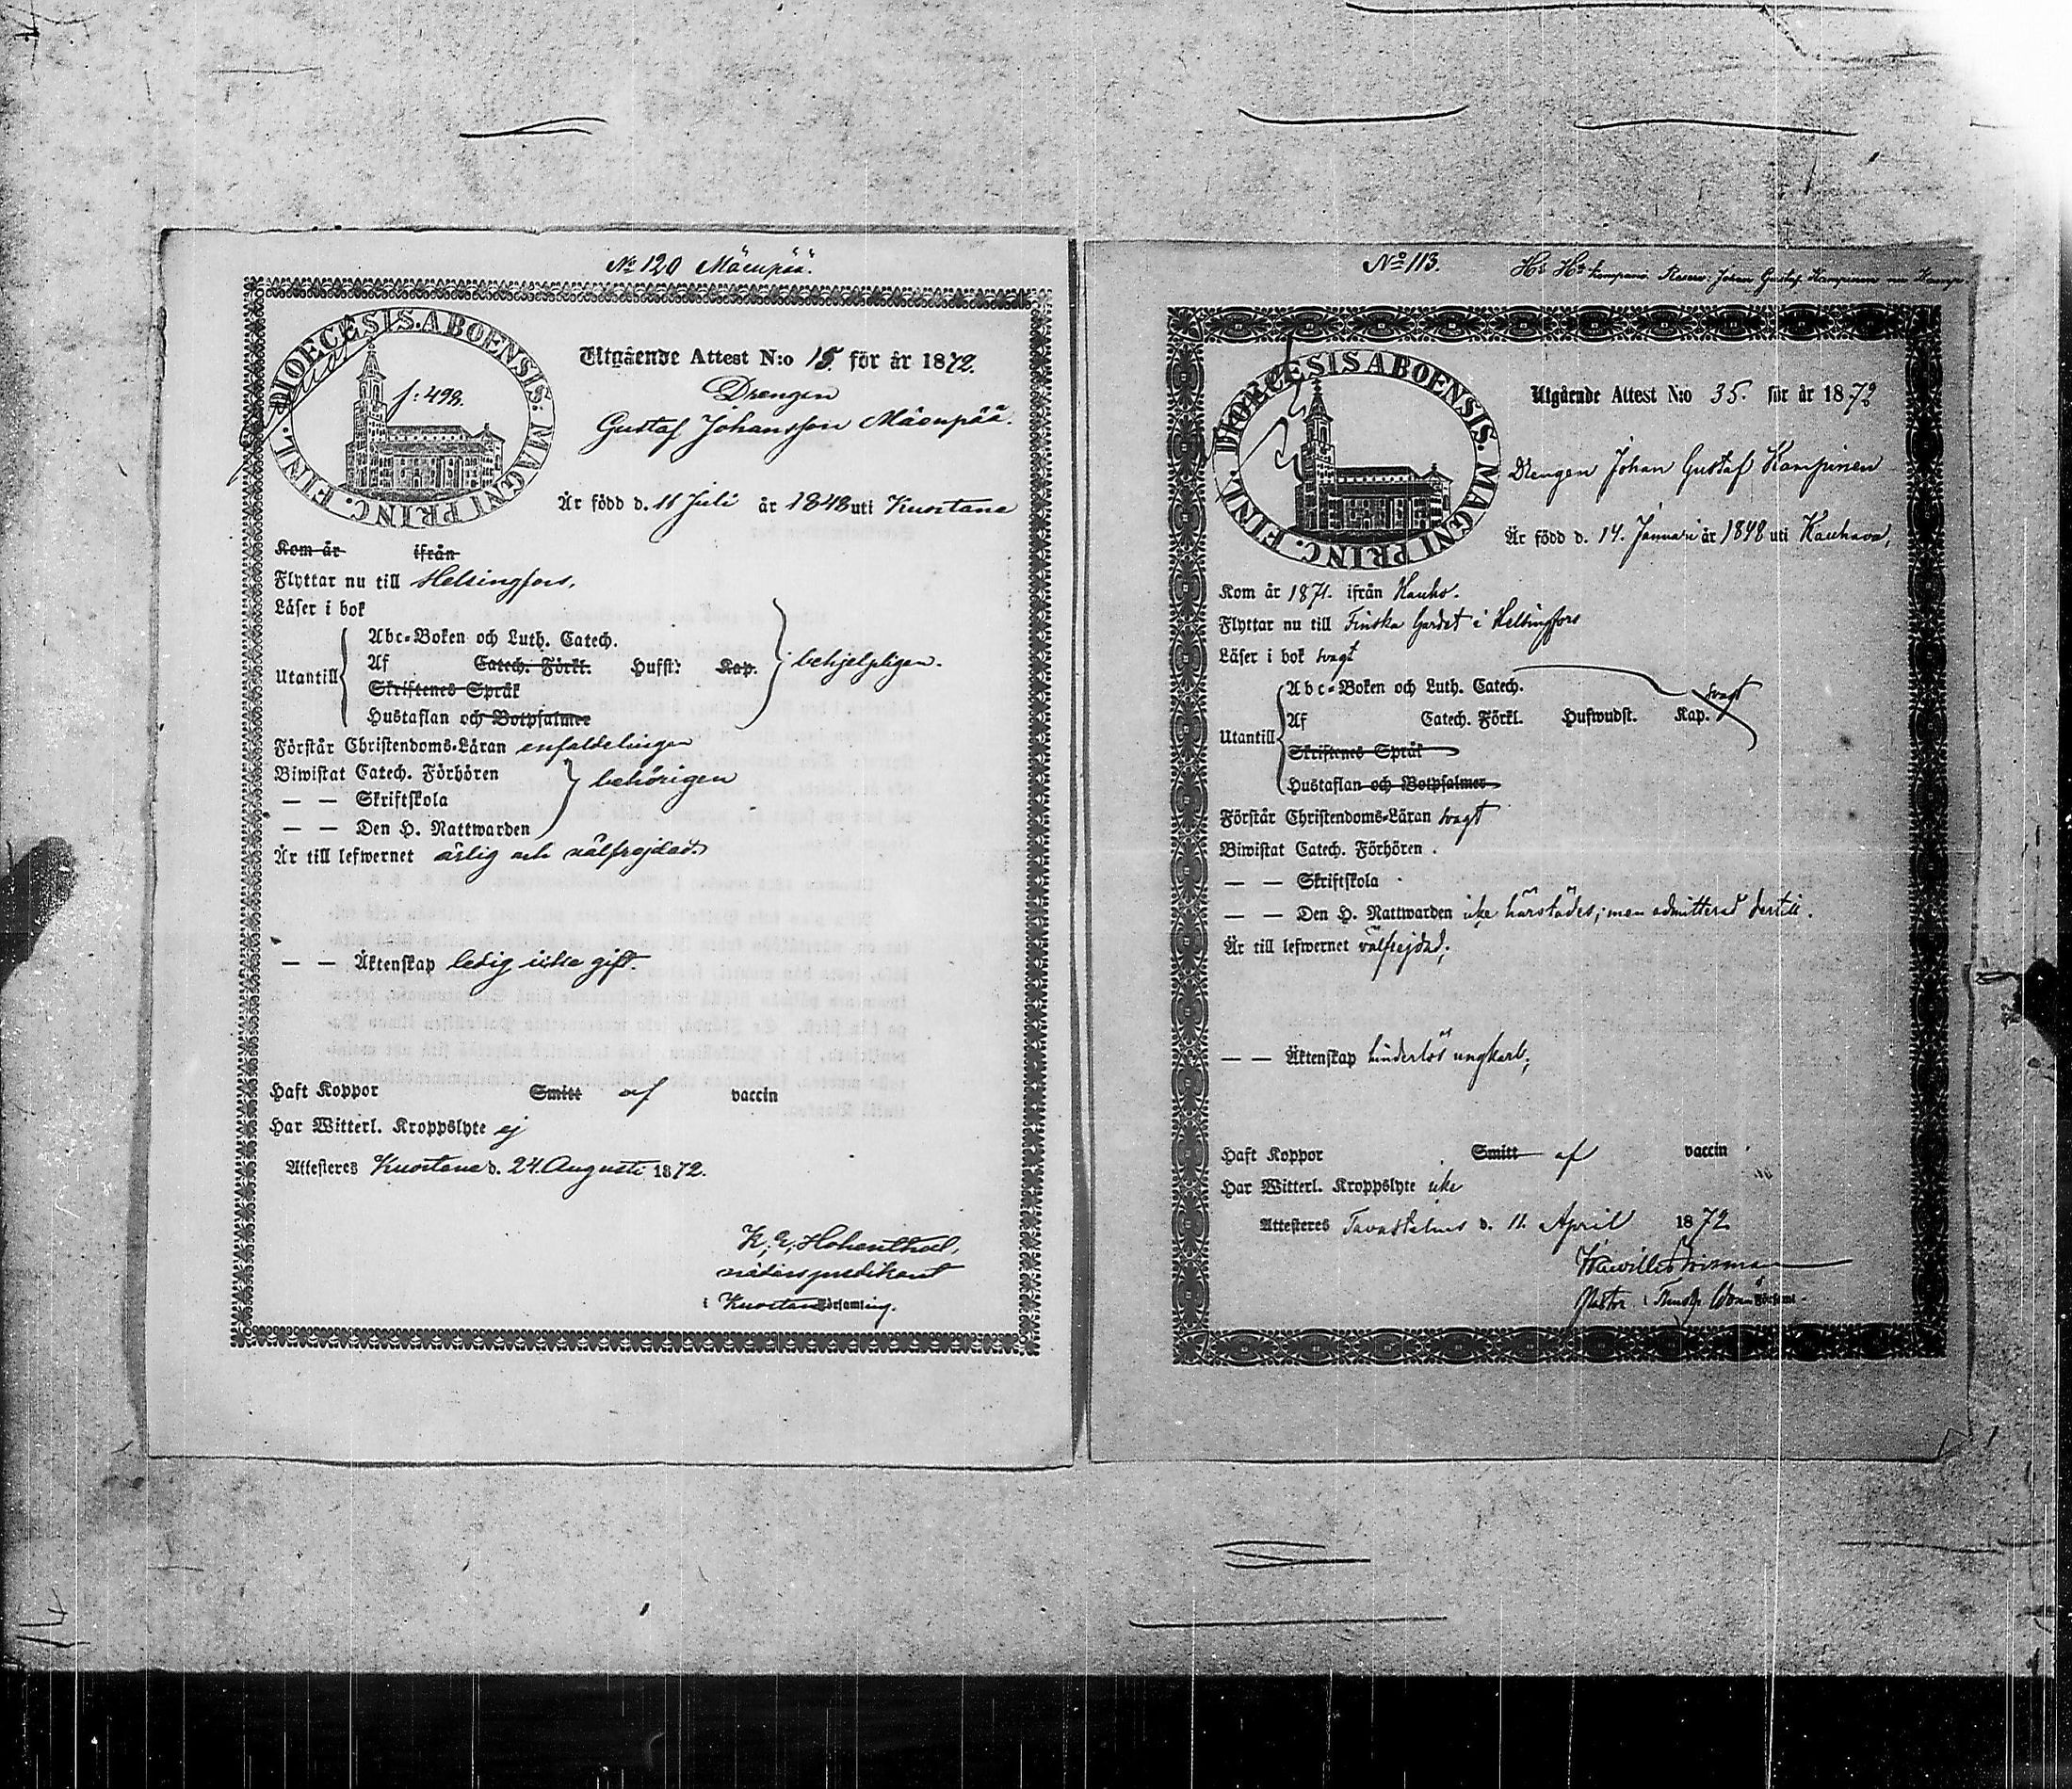 No 120 Mäenpää.
DIOECESIS. ABOENSIS. MAGNI PRINC. FINL.
f: 498.
Utgående Attest N:o 15. för år 1872.
Drengen
Gustaf Johansson Mäenpää.
Är född d. 11 Juli år 1848 uti Kuortane
Kom år ifrån
Flyttar nu till Helsingfors.
Läser i bok
Utantill
Abc-Boken och Luth. Catech.
Af Catech. Förkl. Hufst: Kap.
Skriftenes Språk
Hustaflan och Botpsalmer
behjelpligen.
Förstår Christendoms-Läran enfaldeligen
Biwistat Catech. Förhören
— — Skriftskola
— — Den H. Nattwarden
behörigen
Är till lefwernet ärlig och välfrejdad.
— — Äktenskap ledig icke gift.
Haft Koppor Smitt af vaccin
Har Witterl. Kroppslyte ej
Attesteres Kuortane d. 24. Augusti 1872.
K. E. Hohenthal,
predikant
i Kuortane församling.
No 113.
Reserv: Johan Gustaf Kampinen
DIOECESIS ABOENSIS. MAGNI PRINC. FINL.
Utgående Attest N:o 35. för år 1872
Drengen Johan Gustaf Kampinen
Är född d. 14. Januari år 1848 uti Kauhava,
Kom år 1871. ifrån Kauh.
Flyttar nu till Finska Gardet i Helsingfors
Läser i bok svagt
Utantill
Abc-Boken och Luth. Catech.
Af Catech. Förkl. Hufwudst. Kap.
Skriftenes Språk
Hustaflan och Botpsalmer
svagt
Förstår Christendoms-Läran svagt
Biwistat Catech. Förhören
— — Skriftskola
— — Den H. Nattwarden icke härstädes, men admitterad dertill.
Är till lefwernet välfrejdad;
— — Äktenskap hinderlös ungkarl;
Haft Koppor Smitt af vaccin
Har Witterl. Kroppslyte icke
Attesteres Tavastehus d. 11. April 1872
Pastor i Församl.